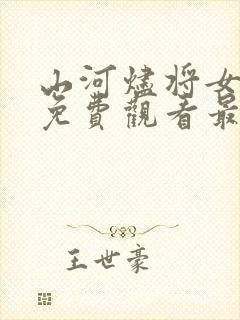 山河燼將女
免費觀看最
王世豪